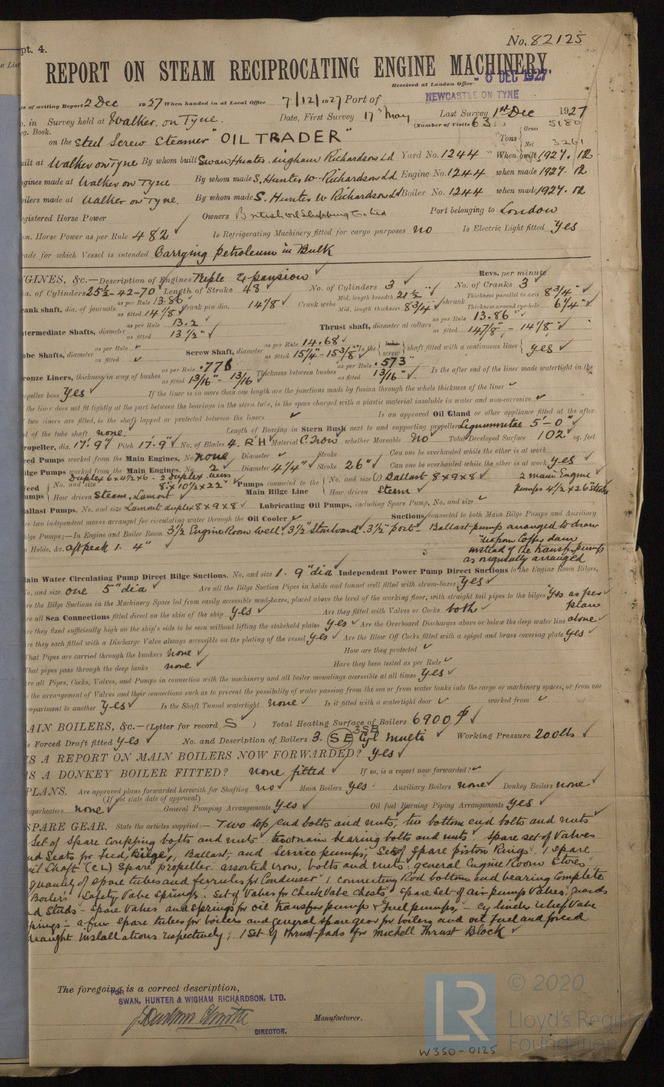 pt. 4.
No. 82125
REPORT ON STEAM RECIPROCATING ENGINE MACHINERY.
Received at London Office - 6 DEC 1927
of writing Report 2 Dec 1927 When handed in at Local Office 7/12/1927 Port of NEWCASTLE ON TYNE
in Survey held at Walker on Tyne. Date, First Survey 17th May Last Survey 1st Dec 1927
Book. (Number of Visits 63)
on the Steel Screw Steamer "OIL TRADER" Tons Gross 5180 Net 3261
built at Walker on Tyne By whom built Swan Hunter Wigham Richardson Ld Yard No. 1244 When built 1927. 12
Engines made at Walker on Tyne By whom made S. Hunter W. Richardson Ld Engine No. 1244 when made 1927. 12
Boilers made at Walker on Tyne. By whom made S. Hunter W Richardson Ld Boiler No. 1244 when made 1927. 12
Registered Horse Power Owners British Oil Shipping Co Ltd Port belonging to London
Horse Power as per Rule 482 Is Refrigerating Machinery fitted for cargo purposes no Is Electric Light fitted Yes
Trade for which Vessel is intended Carrying Petroleum in Bulk
ENGINES, &c.—Description of Engines Triple Expansion Revs. per minute
Dia. of Cylinders 25½-42-70 Length of Stroke 48 No. of Cylinders 3 No. of Cranks 3
Crank shaft, dia. of journals as per Rule 13.86 as fitted 14⅛ Crank pin dia. 14⅛ Crank webs Mid. length breadth 21½ Mid. length thickness 8¾ shrunk Thickness parallel to axis 8¾ Thickness around eyehole 6¼
Intermediate Shafts, diameter as per Rule 13.2 as fitted 13½ Thrust shaft, diameter at collars as per Rule 13.86 as fitted 14⅞ - 14⅛
Tube Shafts, diameter as per Rule as fitted Screw Shaft, diameter as per Rule 14.68 as fitted 15¼-15⅜ Is the screw shaft fitted with a continuous liner yes
Bronze Liners, thickness in way of bushes as per Rule .776 as fitted 13/16 - 13/16 Thickness between bushes as per Rule .573 as fitted 13/16 Is the after end of the liner made watertight in the
propeller boss Yes If the liner is in more than one length are the joints made by fusion through the whole thickness of the liner
the liner does not fit tightly at the part between the bearings in the stern tube, is the space charged with a plastic material insoluble in water and non-corrosive
two liners are fitted, is the shaft lapped or protected between the liners Is an approved Oil Gland or other appliance fitted at the after
end of the tube shaft none. Length of Bearing in Stern Bush next to and supporting propeller Lignumvitae 5'-0"
Propeller, dia. 17.97 Pitch 17.9 No. of Blades 4. R H Material C. Iron whether Moveable No Total Developed Surface 102 sq. feet
Feed Pumps worked from the Main Engines, No. none Diameter Stroke Can one be overhauled while the other is at work
Bilge Pumps worked from the Main Engines, No. 2 Diameter 4¼ Stroke 26" Can one be overhauled while the other is at work yes
Feed Pumps No. and size Duplex 6x4½x6 - 2 Duplex 8x10½x22" Pumps connected to the Main Bilge Line No. and size Ballast 8x9x8 2 main Engine
How driven Steam, Lamont How driven Steam pumps 4½x26 stroke
Ballast Pumps, No. and size Lamont duplex 8x9x8 Lubricating Oil Pumps, including Spare Pump, No. and size
two independent means arranged for circulating water through the Oil Cooler Suctions, connected to both Main Bilge Pumps and Auxiliary
Bilge Pumps;—In Engine and Boiler Room 3½ Engine Room well, 3½ Starboard 3½ port. Ballast pump arranged to draw
In Holds, &c. aft peak 1. 4" upon Cofferdam
instead of the transf. pump
as originally arranged
Main Water Circulating Pump Direct Bilge Suctions, No. and size 1. 9" dia Independent Power Pump Direct Suctions to the Engine Room Bilges,
No. and size one 5" dia Are all the Bilge Suction Pipes in holds and tunnel well fitted with strum-boxes yes
Are the Bilge Suctions in the Machinery Space led from easily accessible mud-boxes, placed above the level of the working floor, with straight tail pipes to the bilges Yes as per plan
Are all Sea Connections fitted direct on the skin of the ship Yes Are they fitted with Valves or Cocks both
Are they fixed sufficiently high on the ship's side to be seen without lifting the stokehold plates Yes Are the Overboard Discharges above or below the deep water line above
Are they each fitted with a Discharge Valve always accessible on the plating of the vessel Yes Are the Blow Off Cocks fitted with a spigot and brass covering plate Yes
What Pipes are carried through the bunkers none How are they protected
What pipes pass through the deep tanks none Have they been tested as per Rule
Are all Pipes, Cocks, Valves, and Pumps in connection with the machinery and all boiler mountings accessible at all times Yes
the arrangement of Valves and their connections such as to prevent the possibility of water passing from the sea or from water tanks into the cargo or machinery spaces, or from one
compartment to another Yes Is the Shaft Tunnel watertight none Is it fitted with a watertight door worked from
MAIN BOILERS, &c.—(Letter for record S) Total Heating Surface of Boilers 6900
Is Forced Draft fitted Yes No. and Description of Boilers 3. SE Cyl Multi 3 SB Working Pressure 200 lbs
IS A REPORT ON MAIN BOILERS NOW FORWARDED? Yes
IS A DONKEY BOILER FITTED? none fitted If so, is a report now forwarded?
PLANS. Are approved plans forwarded herewith for Shafting no Main Boilers Yes Auxiliary Boilers none Donkey Boilers none
(If not state date of approval)
Superheaters none General Pumping Arrangements Yes Oil fuel Burning Piping Arrangements Yes
SPARE GEAR. State the articles supplied:— Two top end bolts and nuts, two bottom end bolts and nuts
Set of spare coupling bolts and nuts two main bearing bolts and nuts spare set of valves
and Seats for feed, Bilge, Ballast, and service pumps, Set of spare piston Rings. 1 spare
Tail Shaft (CL) Spare propeller. assorted iron, bolts and nuts. general Engine Room Stores
quantity of spare tubes and ferrules for Condenser 1 connecting Rod bottom end bearing complete
Boilers Safety Valve Springs. Set of Valves for Check Valve Chests Spare Set of air pump Valves, guards
and Studs - Spare Valves and springs for oil transfer pumps & fuel pumps - Cylinder relief Valve
springs - a few spare tubes for boilers and general spare gear for boilers and oil fuel and forced
draught installations respectively; 1 Set of thrust pads for Michell Thrust Block
The foregoing is a correct description,
FOR SWAN, HUNTER & WIGHAM RICHARDSON, LTD.
Manufacturer.
DIRECTOR.
© 2020
LR
Lloyd's Register
Foundation
W350-0125